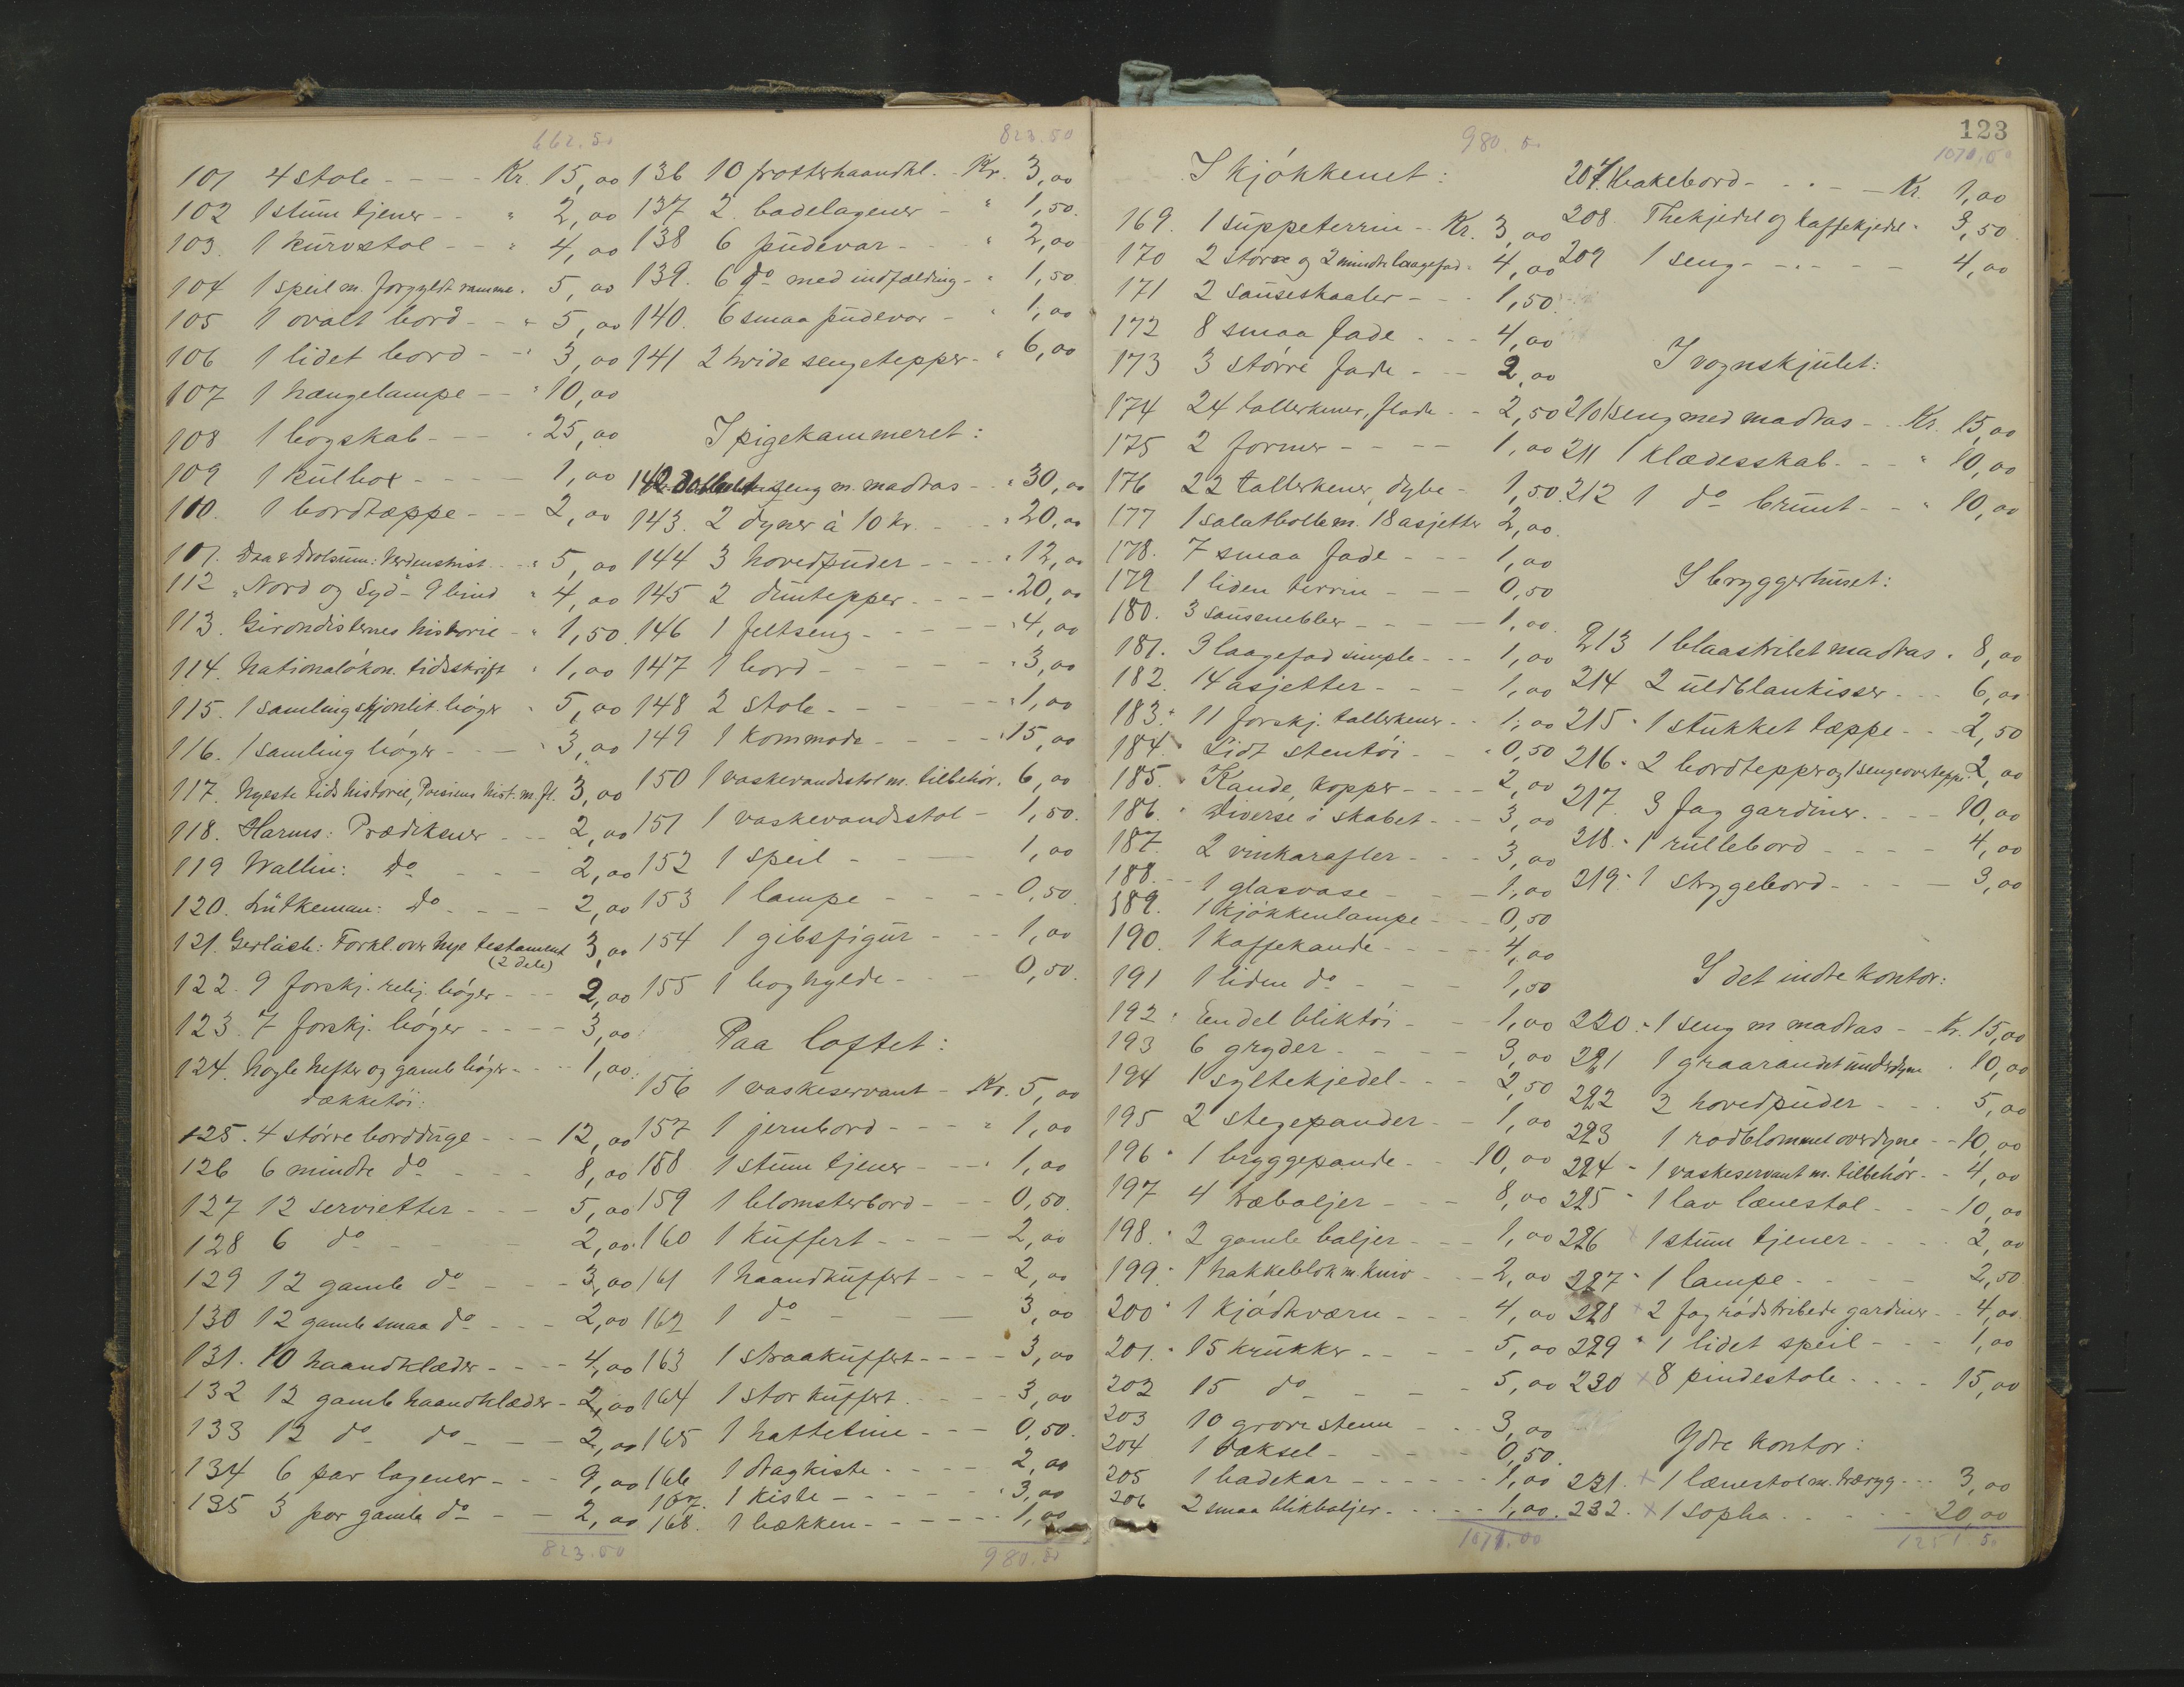 662.50
101 4 stole - - - - Kr. 15,00
102 1 stum tjener - - " 2,00
103. 1 kurvstol - - " 4,00
104 1 speil m. forgyldt ramme. " 5,00
105 1 ovalt bord - - " 5,00
106 1 lidet bord - - " 3,00
107 1 hængelampe - - " 10,00
108 1 bogskab - - - " 25,00
109 1 kulbox - - - - 1,00
110. 1 bordtæppe - - - 2,00
Verdenshist. - - " 5,00
112 "Nord og Syd" - 9 bind " 4,00
113. Girondisternes historie - " 1,50
114. Nationaløkon. tidsskrift " 1,00
115. 1 samling skjønlit. bøger " 5,00
116. 1 samling bøger - - - " 3,00
117. Nyeste tids historie, Preisens hist. m. fl. 3,00
118. Harms: Prædikener - - - 2,00
119 Wallin: do - - - 2,00
120. Lütkeman: do - - - - 2,00
121. Gerlach: Forkl. over Nye testament 3,00
(2 dele)
122. 9 forskj. relig. bøger - - - 2,00
123. 7 forskj. bøger - - - - 3,00
124. Nogle hefter og gamle bøger - - - 1,00
Dækketøi:
125. 4 større borddüge - - - 12,00
126 6 mindre do - - - - 8,00
127 12 servietter - - - 5,00
128 6 do - - 2,00
129 12 gamle do - - - 3,00
130 12 gamle smaa do - - - 2,00
131. 10 haandklæder - - - - 4,00
132 12 gamle haandklæder - 2,00
133 12 do do - - - 2,00
134 6 par lagener - - - 9,00
135 3 par gamle do - - 2,00
823.50
823.50
136 10 frotterhaandkl. - Kr. 3,00
137 2 badelagener - " 1,50.
138 6 püdevar - - - " 2,00
139. 6 do med indfælding - " 1,50
140. 6 smaa püdevar - " 1,00
141 2 hvide sengetepper - " 6,00
I pigekammeret:
142 seng m. madras - - " 30,00
143. 2 dyner à 10 kr. - - - " 20,00
144 3 hovedpüder - - - - " 12,00
145 2 düntepper - - - - " 20,00
146 1 feltseng - - - - - " 4,00
147 1 bord - - - - - - " 3,00
148 2 stole - - - - - " 1,00
149 1 kommode - - - - " 15,00
150 1 vaskevandsstol m. tilbehör. 6,00
151 1 vaskevandsstol - 1,50.
152 1 speil - - - - 1,00
153 1 lampe - - - - 0,50.
154 1 gibsfigür - - - 1,00
155 1 boghylde - - - 0,50.
Paa loftet:
156 1 vaskeservant - Kr. 5,00
157 1 jernbord - - - - " 1,00
158 1 stüm tjener - - - " 1,00
159 1 blomsterbord - - - 0,50.
160 1 küffert - - - - 2,00
161 1 haandküffert - - - 2,00
162 1 do - - - 3,00
163 1 straaküffert - - - - 3,00
164 1 stor küffert - - - - 3,00
165 1 hattetine - - - 0,50.
166 1 dragkiste - - - - 2,00
167. 1 kiste - - - - - " 3,00
168. 1 bækken - - - - - 1,00
980.50
123
980.50
I kjøkkenet:
169. 1 süppeterrin - Kr. 3,00
170 2 store og 2 mindre laagefad " 4,00
171 2 sauseskaaler - - - 1,50.
172 8 smaa fade - - - 4,00
173 3 större fade - - - 2,00
174 24 tallerkener, flade - - 2,50
175 2 former - - - - 1,00
176 22 tallerkener, dybe - 1,50
177 1 salatbolle m. 18 asjetter 2,00
178. 7 smaa fade - - - 1,00
179 1 liden terrin - - - 0,50
180. 3 sausenebber - - - - 1,00.
181. 3 laagefad simple - - - 1,00
182. 14 asjetter - - - - 1,00
183. " 11 forskj. tallerkener - - 1,00
184. " Lidt stentöi - - - " 0,50
185. " Kande, kopper - - - - 2,00
186. " Diverse i skabet - - - 3,00
187. 2 vinkarafler - - - 3,00
188. - 1 glasvase - - - - 1,00
189. 1 kjøkkenlampe - - - 0,50
190. 1 kaffekande - - - - 4,00
191 1 liden do - - - - 1,50
192 " En del bliktöi - - - 1,00
193 6 gryder - - - - 3,00
194 1 syltekjedel - - - 2,50
195 2 stegepander - - 1,00
196 " 1 bryggepande - - 10,00
197 4 træbaljer - - - 8,00
198. " 2 gamle baljer - - - 1,00
199. " 1 hakkeblok m. kniv - - - 2,00
200 " 1 kjödkværn - - - 4,00
201. " 15 krükker - - - - 5,00
202 15 do - - - - 5,00
203 10 - - - 3,00
204 1 - - - - - 0,50.
205 1 badekar - - - - - 1,00
206 2 smaa blikbaljer - - - - 1,00.
1070.00
1070.00
207. Hvakebord - - - - Kr. 1,00
208. Thekjedel og kaffekjedel " 3,50
209 1 seng - - - - - 4,00
I vognskjület:
210 1 seng med madras - - Kr. 15,00
211 1 klædesskab - - - " 10,00
212 1 do brünt - - " 10,00
I bryggerhüset:
213 1 blaastribet madras " 8,00
214 2 üldblankisser - - - 6,00
215 " 1 stükket tæppe - - - 2,50
216 " 2 bordtepper og 1 sengeovertæppe " 2,00
217. 3 fag gardiner - - - - 10,00
218. " 1 rüllebord - - - - 4,00
219. " 1 strygebord - - - - 3,00
I det indre kontor:
220. " 1 seng m madras - - Kr. 15,00
221 1 graarandet underdyne " 10,00
222 2 hovedpüder - - - 5,00
223 1 rødblommet overdyne - - 10,00
224 " 1 vaskeservant m. tilbehör - - 4,00
225 " 1 lav lænestol - - - 10,00
226 x 1 stüm tjener - - - - 2,00
227 " 1 lampe - - - - - 2,50
228 x 2 fag rødstribede gardiner - - 4,00
229 " 1 lidet speil - - - 1,00
230 x 8 pindestole - - - - 15,00
Ydre kontor:
231. x 1 lænestol m. træryg - - - 3,00
232. x 1 sopha - - - - - 20,00
1251.50